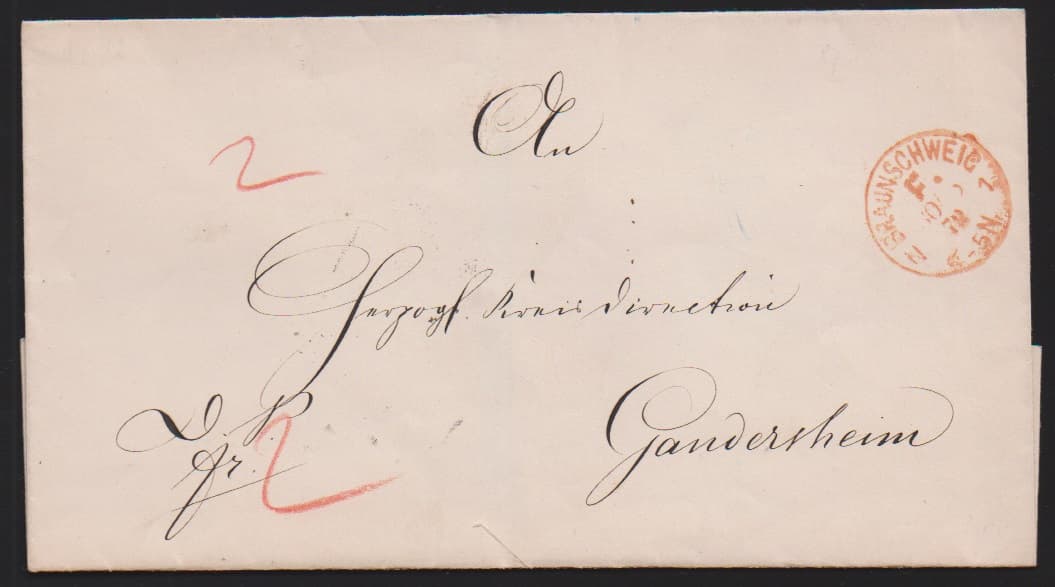 An
2
BRAUNSCHWEIG 2
F
4-5N.
Herzogl. Kreisdirection
D. S.
fr.
2
Gandersheim